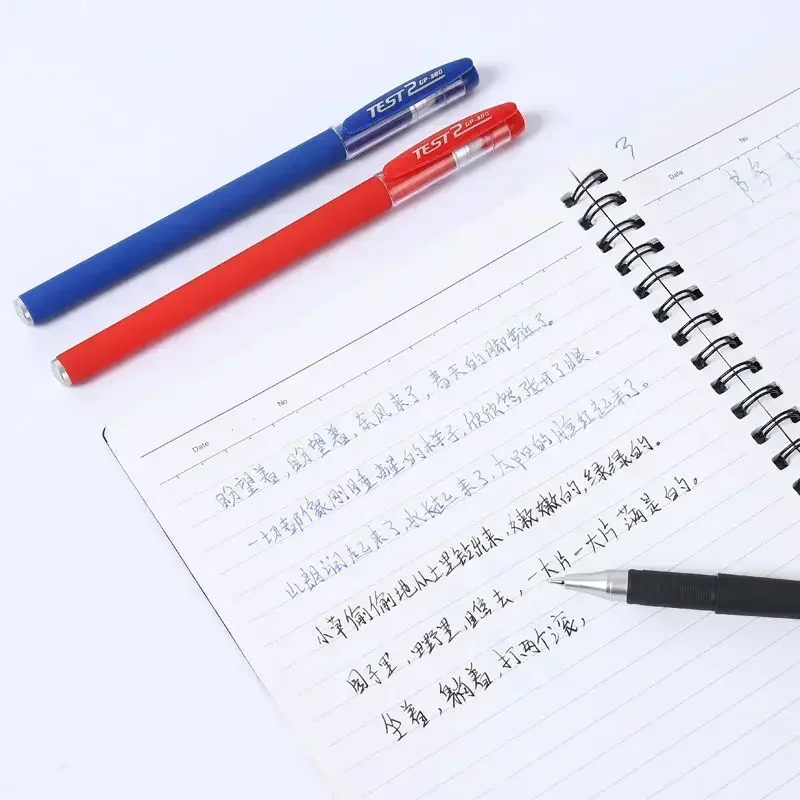 TEST2 GP-380
TEST2 GP-380
3
Date
书写
No
Date
盼望着,盼望着,东风来了,春天的脚步近了。
一切都像刚睡醒的样子,欣欣然张开了眼。
山朗润起来了,水长起来了,太阳的脸红起来了。
小草偷偷地从土里钻出来,嫩嫩的,绿绿的。
园子里,田野里,瞧去,一大片一大片满是的。
坐着,躺着,打两个滚,